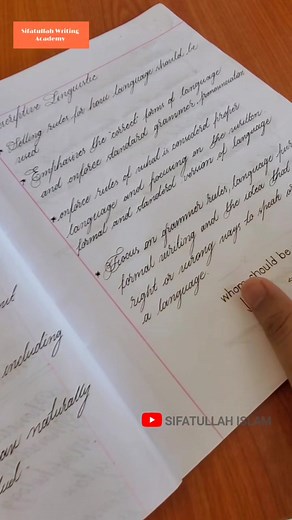 Sifatullah Writing
Academy
scriptive Linguistic
• Telling rules for how language should be
used
• Emphasizes the "correct" forms of language
and enforce standard grammar, pronunciation
• enforce rules of what is considered proper
language and focusing on the written
formal and standard version of language
• Focus on grammar rules, language
formal writing and the idea that
right or wrong ways to speak or
a language
whom should be
including
naturally
SIFATULLAH ISLAM